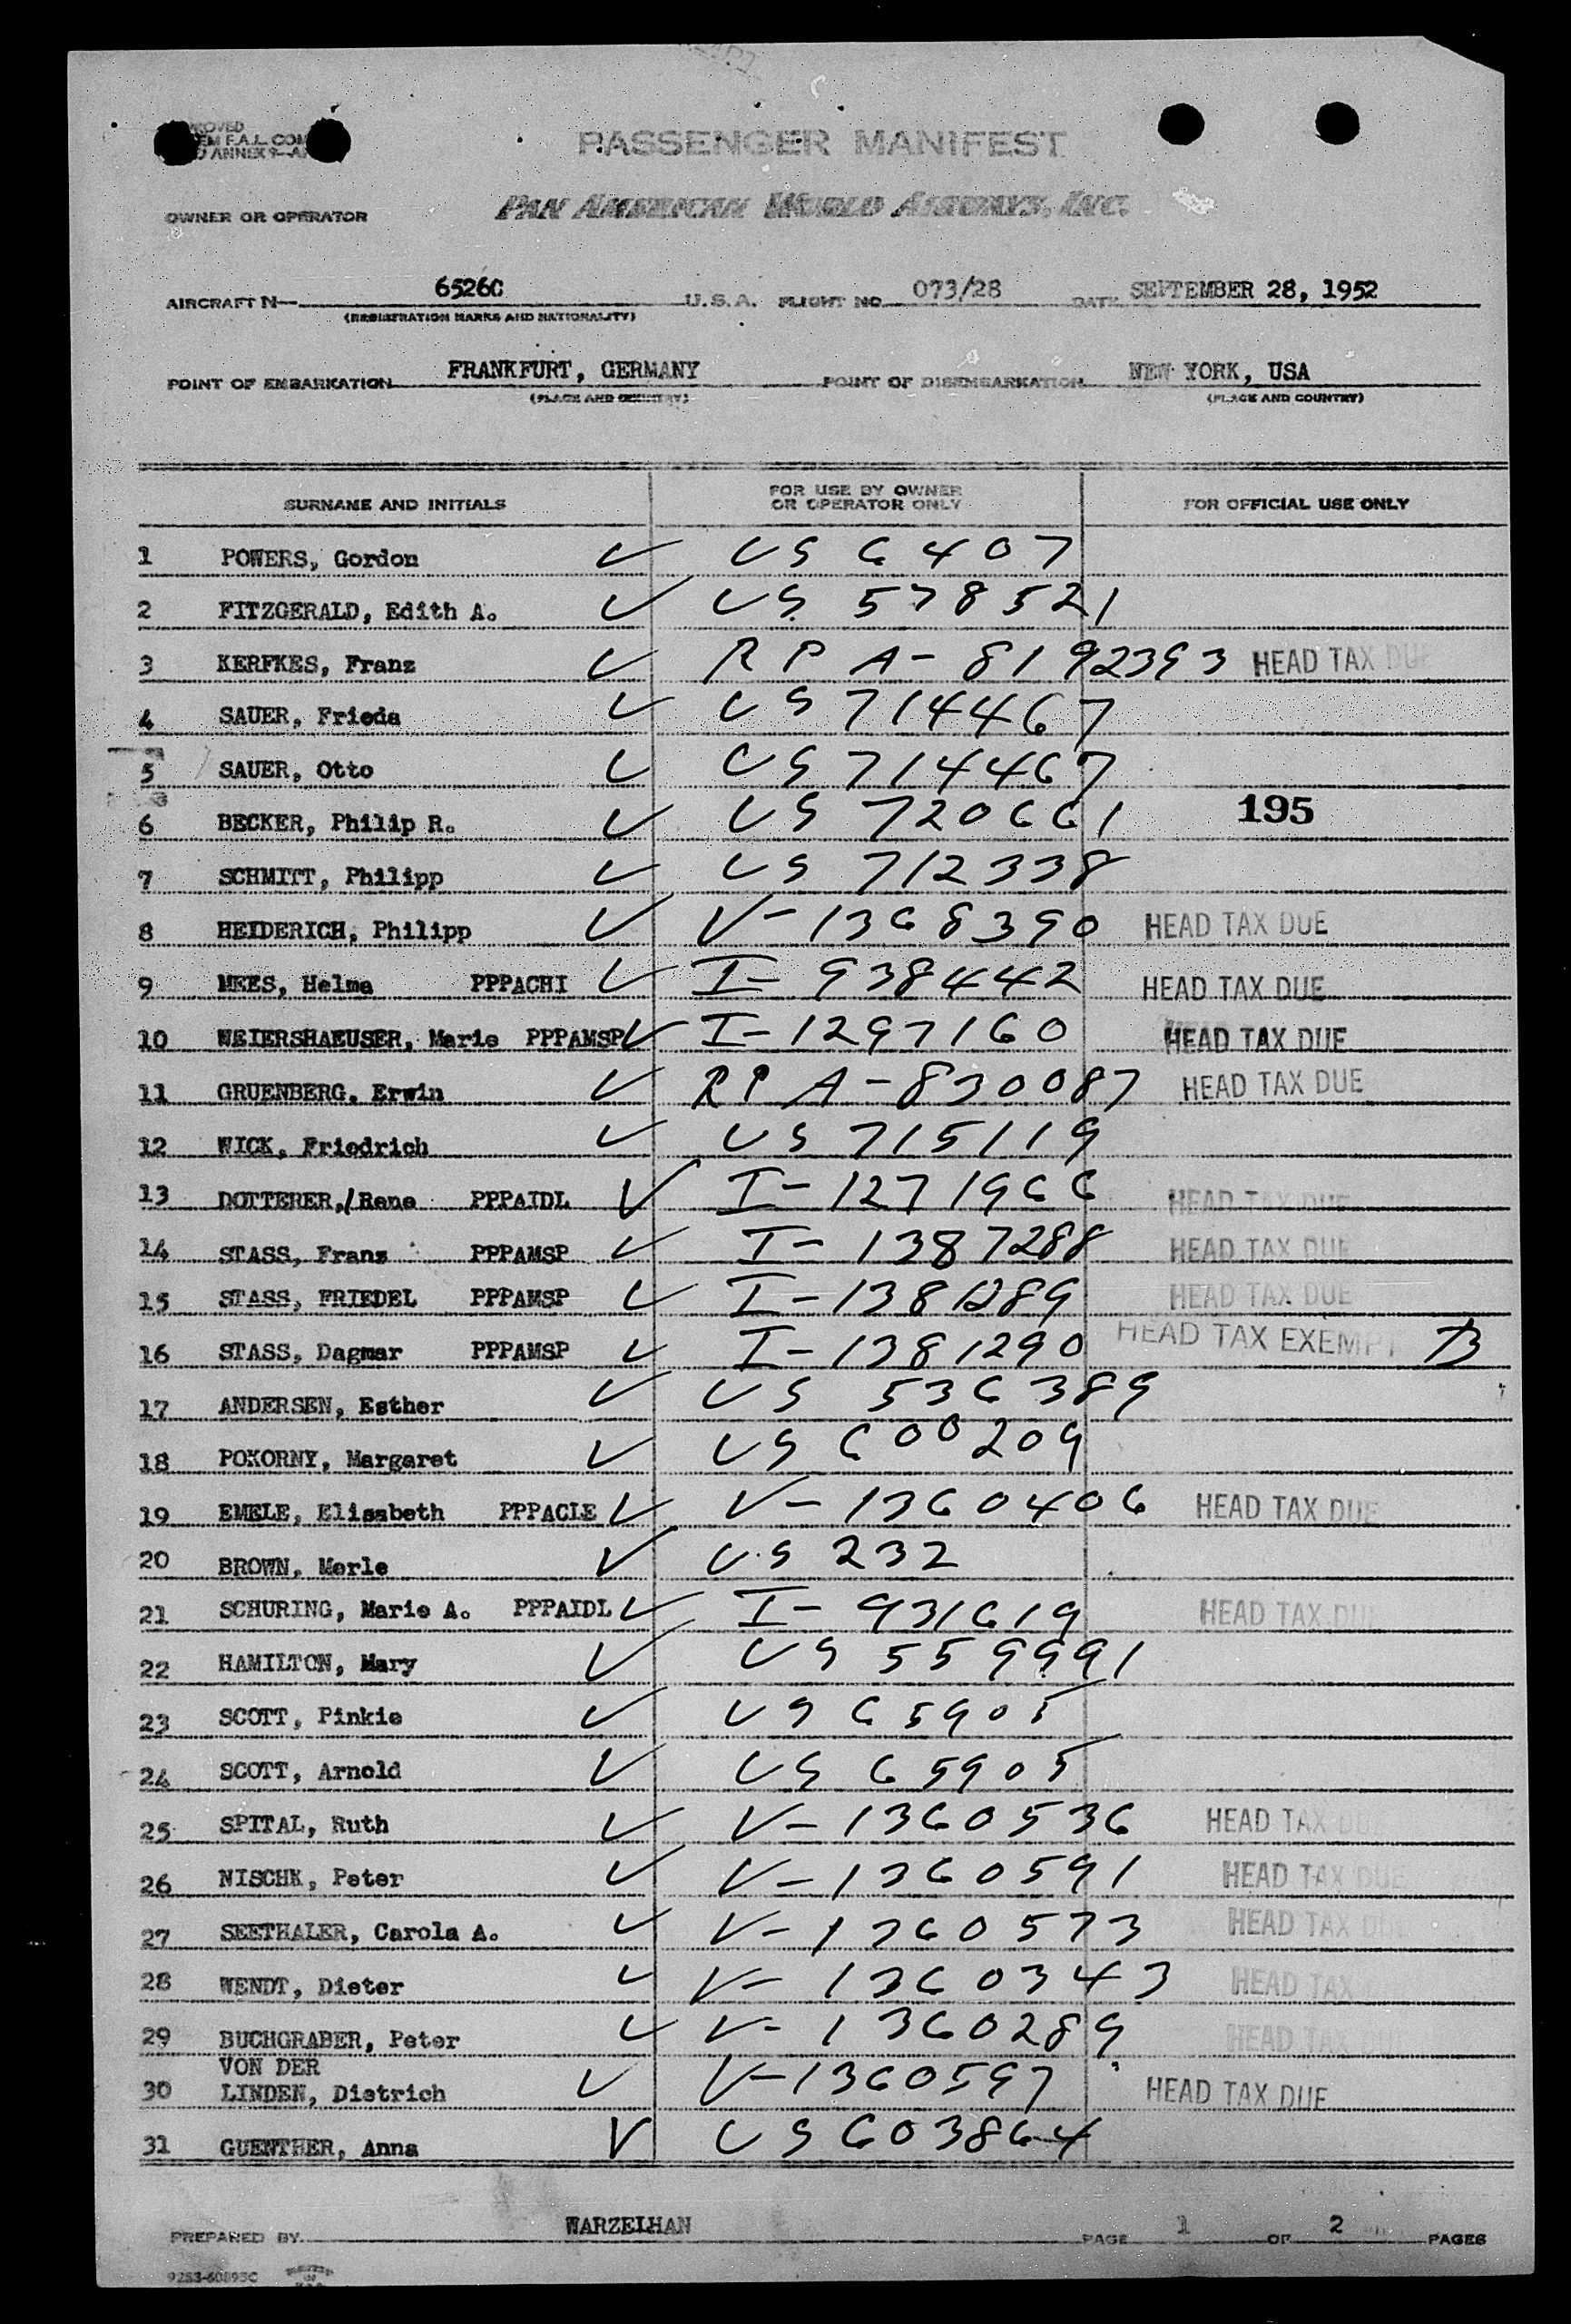 PASSENGER MANIFEST
OWNER OR OPERATOR PAN AMERICAN WORLD AIRWAYS, INC.
AIRCRAFT N- 6526C U.S.A. FLIGHT NO. 073/28 DATE SEPTEMBER 28, 1952
(REGISTRATION MARKS AND NATIONALITY)
POINT OF EMBARKATION FRANKFURT, GERMANY POINT OF DISEMBARKATION NEW YORK, USA
(PLACE AND COUNTRY) (PLACE AND COUNTRY)
SURNAME AND INITIALS FOR USE BY OWNER OR OPERATOR ONLY FOR OFFICIAL USE ONLY
1 POWERS, Gordon ✓ US 6407
2 FITZGERALD, Edith A. ✓ US 578521
3 KERFKES, Franz ✓ RP A-8192393 HEAD TAX DUE
4 SAUER, Frieda ✓ US 714467
5 SAUER, Otto ✓ US 714467
6 BECKER, Philip R. ✓ US 720661 195
7 SCHMITT, Philipp ✓ US 712338
8 HEIDERICH, Philipp ✓ V-1368390 HEAD TAX DUE
9 MEES, Helma PPPACHI ✓ I-938442 HEAD TAX DUE
10 WEIERSHAEUSER, Marie PPPAMSP ✓ I-1297160 HEAD TAX DUE
11 GRUENBERG, Erwin ✓ RP A-830087 HEAD TAX DUE
12 WICK, Friedrich ✓ US 715119
13 DOTTERER,/Rene PPPAIDL ✓ I-1271966 HEAD TAX DUE
14 STASS, Franz PPPAMSP ✓ I-1387288 HEAD TAX DUE
15 STASS, FRIEDEL PPPAMSP ✓ I-1381289 HEAD TAX DUE
16 STASS, Dagmar PPPAMSP ✓ I-1381290 HEAD TAX EXEMPT
17 ANDERSEN, Esther ✓ US 536389
18 POKORNY, Margaret ✓ US 600209
19 EMELE, Elisabeth PPPACLE ✓ V-1360406 HEAD TAX DUE
20 BROWN, Merle ✓ US 232
21 SCHURING, Marie A. PPPAIDL ✓ I-931619 HEAD TAX DUE
22 HAMILTON, Mary ✓ US 559991
23 SCOTT, Pinkie ✓ US 65905
24 SCOTT, Arnold ✓ US 65905
25 SPITAL, Ruth ✓ V-1360536 HEAD TAX DUE
26 NISCHK, Peter ✓ V-1360591 HEAD TAX DUE
27 SEETHALER, Carola A. ✓ V-1360573 HEAD TAX DUE
28 WENDT, Dieter ✓ V-1360343 HEAD TAX
29 BUCHGRABER, Peter ✓ V-1360289 HEAD TAX
VON DER
30 LINDEN, Dietrich ✓ V-1360597 HEAD TAX DUE
31 GUENTHER, Anna ✓ US 603864
PREPARED BY WARZELHAN PAGE 1 OF 2 PAGES